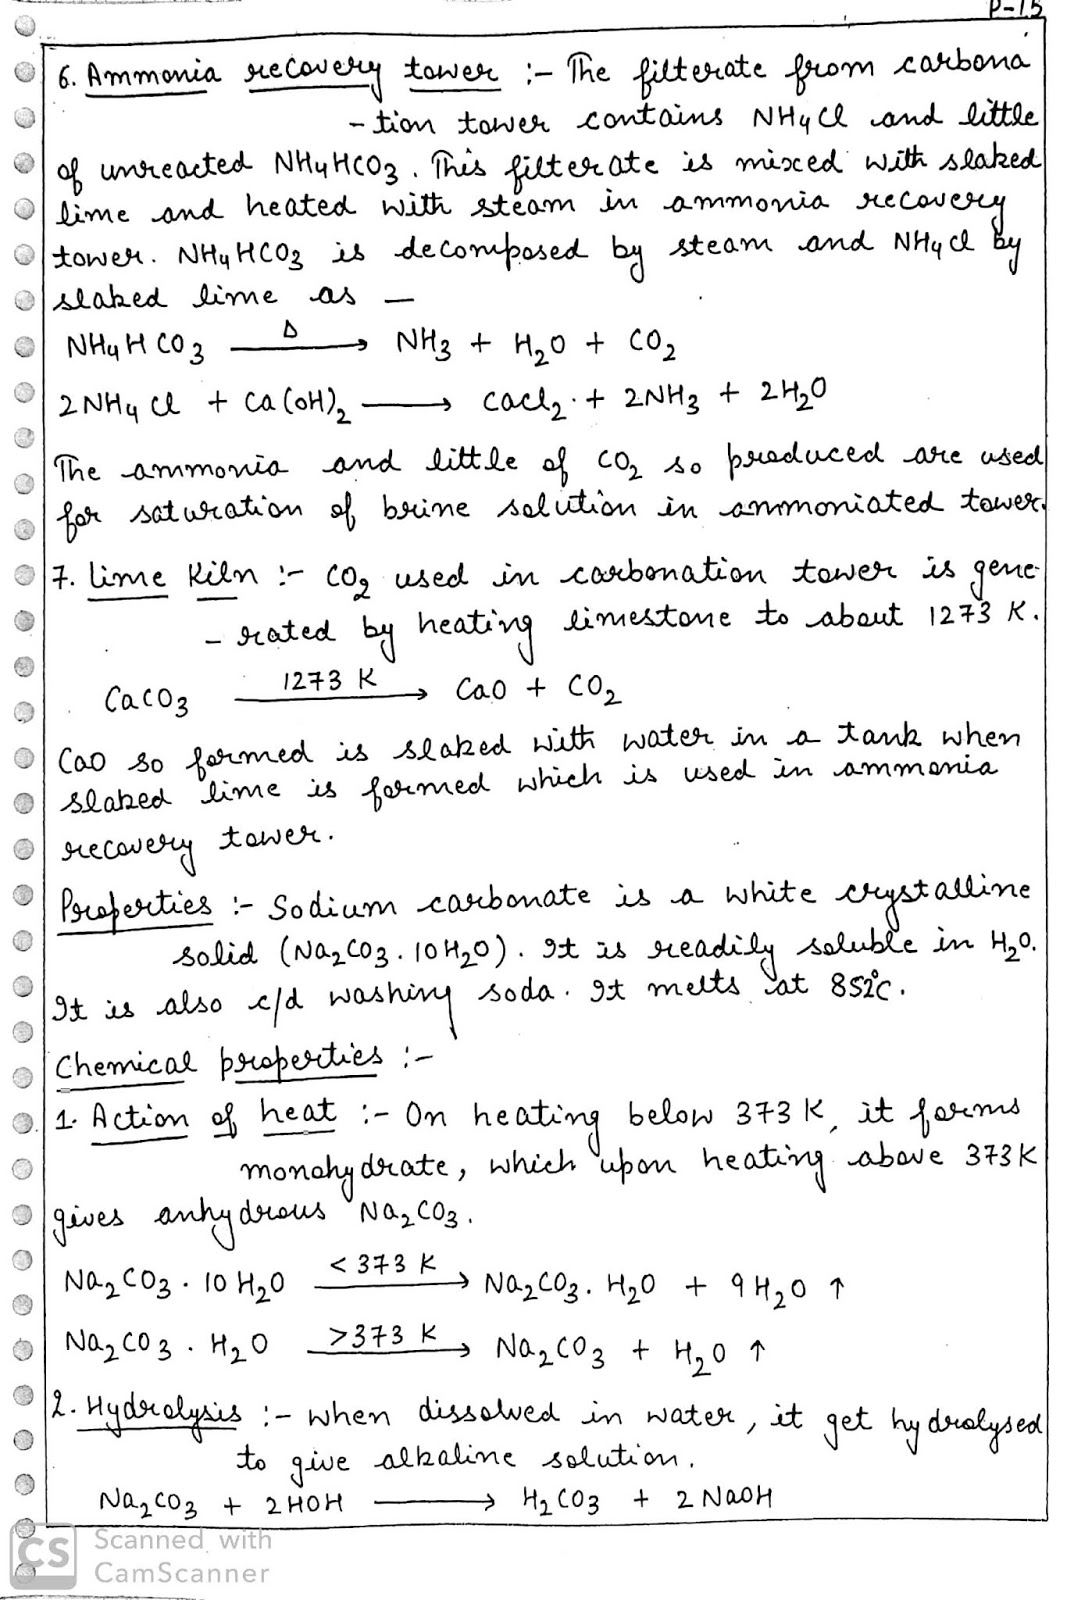 P-15
6. Ammonia recovery tower :- The filterate from carbona
- tion tower contains NH4Cl and little
of unreacted NH4HCO3. This filterate is mixed with slaked
lime and heated with steam in ammonia recovery
tower. NH4HCO3 is decomposed by steam and NH4Cl by
slaked lime as —
NH4HCO3 —Δ→ NH3 + H2O + CO2
2NH4Cl + Ca(OH)2 ⟶ CaCl2 + 2NH3 + 2H2O
The ammonia and little of CO2 so produced are used
for saturation of brine solution in ammoniated tower.
7. Lime Kiln :- CO2 used in carbonation tower is gene
- rated by heating limestone to about 1273 K.
CaCO3 —1273 K→ CaO + CO2
CaO so formed is slaked with water in a tank when
slaked lime is formed which is used in ammonia
recovery tower.
Properties :- Sodium carbonate is a white crystalline
solid (Na2CO3.10H2O). It is readily soluble in H2O.
It is also c/d washing soda. It melts at 852°C.
Chemical properties :-
1. Action of heat :- On heating below 373 K, it forms
monohydrate, which upon heating above 373K
gives anhydrous Na2CO3.
Na2CO3 . 10H2O —< 373 K→ Na2CO3. H2O + 9H2O ↑
Na2CO3 . H2O —>373 K→ Na2CO3 + H2O ↑
2. Hydrolysis :- When dissolved in water, it get hydrolysed
to give alkaline solution.
Na2CO3 + 2HOH ⟶ H2CO3 + 2NaOH
CS Scanned with
CamScanner